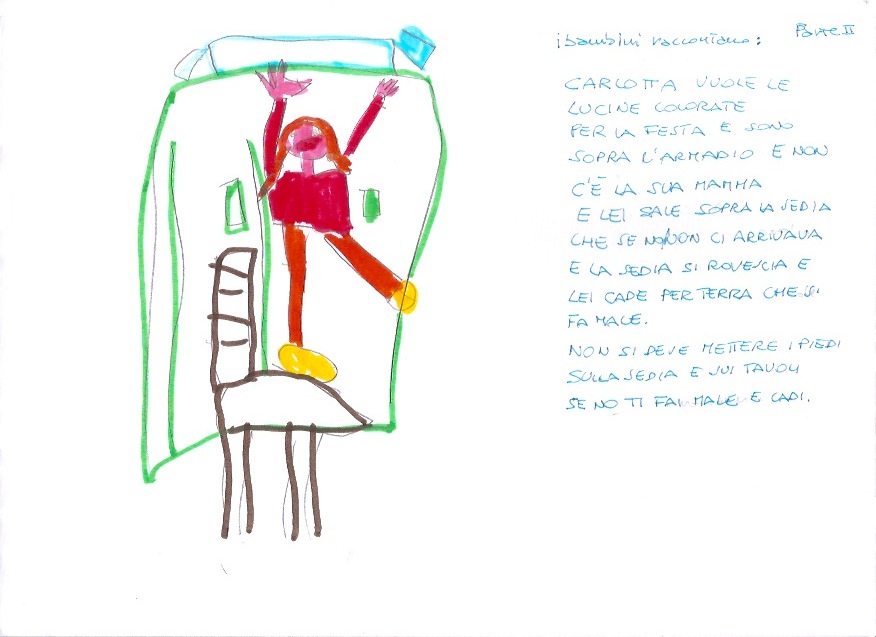 i bambini raccontano: Parte II
CARLOTTA VUOLE LE
LUCINE COLORATE
PER LA FESTA E SONO
SOPRA L'ARMADIO E NON
C'È LA SUA MAMMA
E LEI SALE SOPRA LA SEDIA
CHE SE NO NON CI ARRIVAVA
E LA SEDIA SI ROVESCIA E
LEI CADE PER TERRA CHE SI
FA MALE.
NON SI DEVE METTERE I PIEDI
SULLA SEDIA E SUI TAVOLI
SE NO TI FAI MALE E CADI.